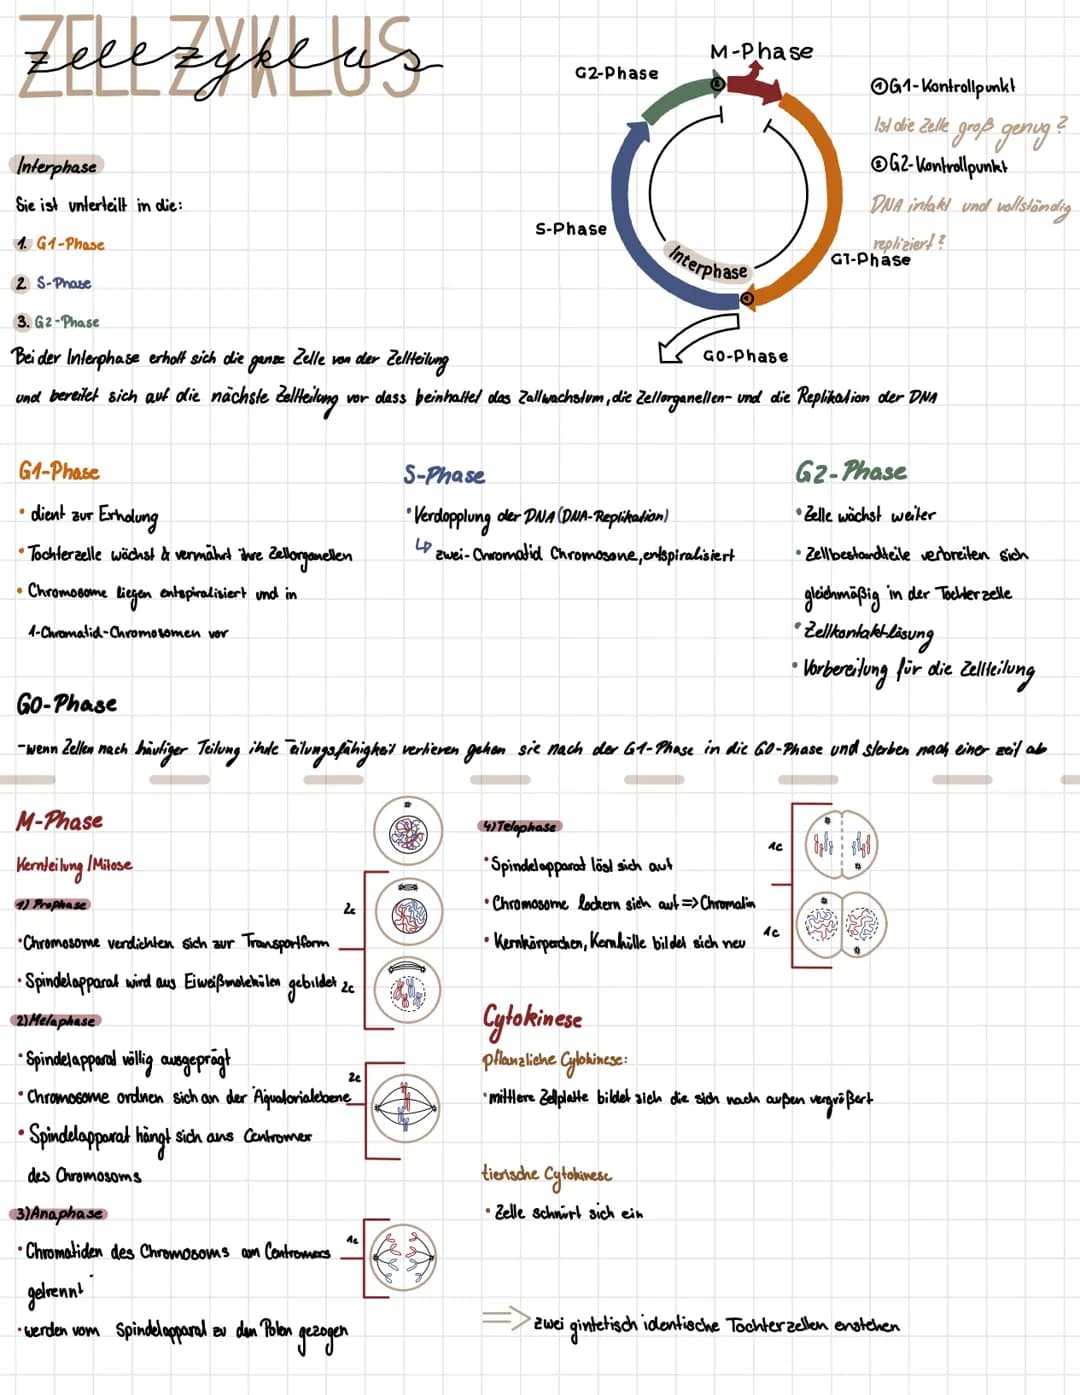 ZELLZYKLUS
zellzyklus
M-Phase
G2-Phase
S-Phase
Interphase
G1-Phase
G0-Phase
①G1-Kontrollpunkt
Ist die Zelle groß genug?
②G2-Kontrollpunkt
DNA intakt und vollständig
repliziert?
Interphase
Sie ist unterteilt in die:
1. G1-Phase
2 S-Phase
3. G2-Phase
Bei der Interphase erholt sich die ganze Zelle von der Zellteilung
und bereitet sich auf die nächste Zellteilung vor dass beinhaltet das Zallwachstum, die Zellorganellen- und die Replikation der DNA
G1-Phase
• dient zur Erholung
• Tochterzelle wächst & vermährt ihre Zellorganellen
• Chromosome liegen entspiralisiert und in
1-Chromatid-Chromosomen vor
S-Phase
• Verdopplung der DNA (DNA-Replikation)
↳ zwei-Chromatid Chromosone, entspiralisiert
G2-Phase
• Zelle wächst weiter
• Zellbestandteile verbreiten sich
gleichmäßig in der Tochterzelle
• Zellkontaktlösung
• Vorbereitung für die Zellteilung
G0-Phase
-wenn Zellen nach häufiger Teilung ihre Teilungsfähigkeit verlieren gehen sie nach der G1-Phase in die G0-Phase und sterben nach einer zeit ab
M-Phase
Kernteilung/Mitose
1) Prophase
• Chromosome verdichten sich zur Transportform
• Spindelapparat wird aus Eiweißmolekülen gebildet
2c
2c
2) Metaphase
• Spindelapparat völlig ausgeprägt
• Chromosome ordnen sich an der Äquatorialebene
• Spindelapparat hängt sich ans Centromer
des Chromosoms
2c
3) Anaphase
• Chromatiden des Chromosoms am Centromers
getrennt
• werden vom Spindelapparat zu den Polen gezogen
1c
4) Telophase
• Spindelapparat löst sich auf
• Chromosome lockern sich auf => Chromatin
• Kernkörperchen, Kernhülle bildet sich neu
1c
1c
Cytokinese
pflanzliche Cytokinese:
• mittlere Zellplatte bildet sich die sich nach außen vergrößert
tierische Cytokinese
• Zelle schnürt sich ein
⇒ zwei gintetisch identische Tochterzellen enstehen